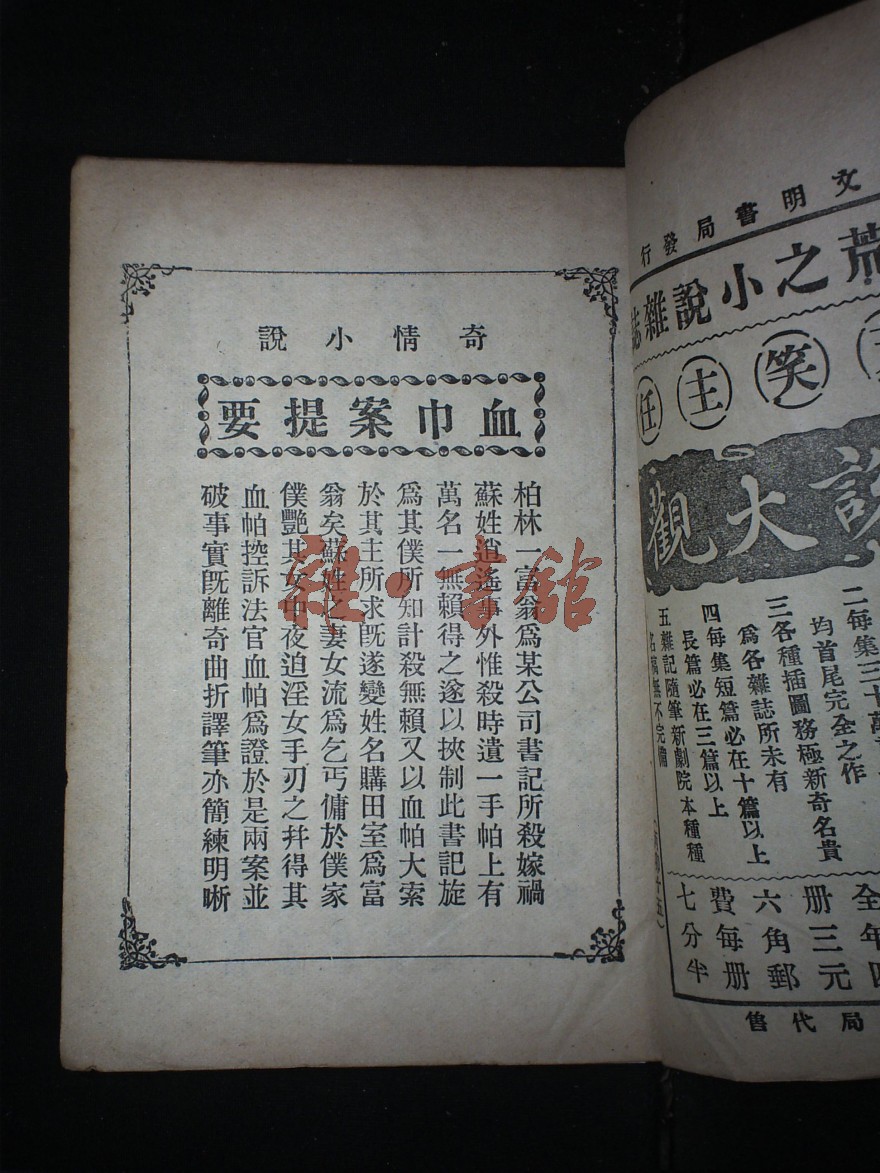 奇情小說
血巾案提要
柏林一富翁爲某公司書記所殺嫁禍
蘇姓逍遙事外惟殺時遺一手帕上有
萬名一無賴得之遂以挾制此書記旋
爲其僕所知計殺無賴又以血帕大索
於其主所求旣遂變姓名購田室爲富
翁矣蘇姓之妻女流爲乞丐傭於僕家
僕艷其女中夜迫淫女手刃之幷得其
血帕控訴法官血帕爲證於是兩案並
破事實旣離奇曲折譯筆亦簡練明晰
文明書局發行
荒之小說雜誌
笑主任
說大觀
二每集三十萬
均首尾完全之作
三各種插圖務極新奇名貴
爲各雜誌所未有
四每集短篇必在十篇以上
長篇必在三篇以上
五雜記隨筆新劇院本種種
名稿無不完備
全年四
册三元
六角郵
費每册
七分半
局代售
雜·書館